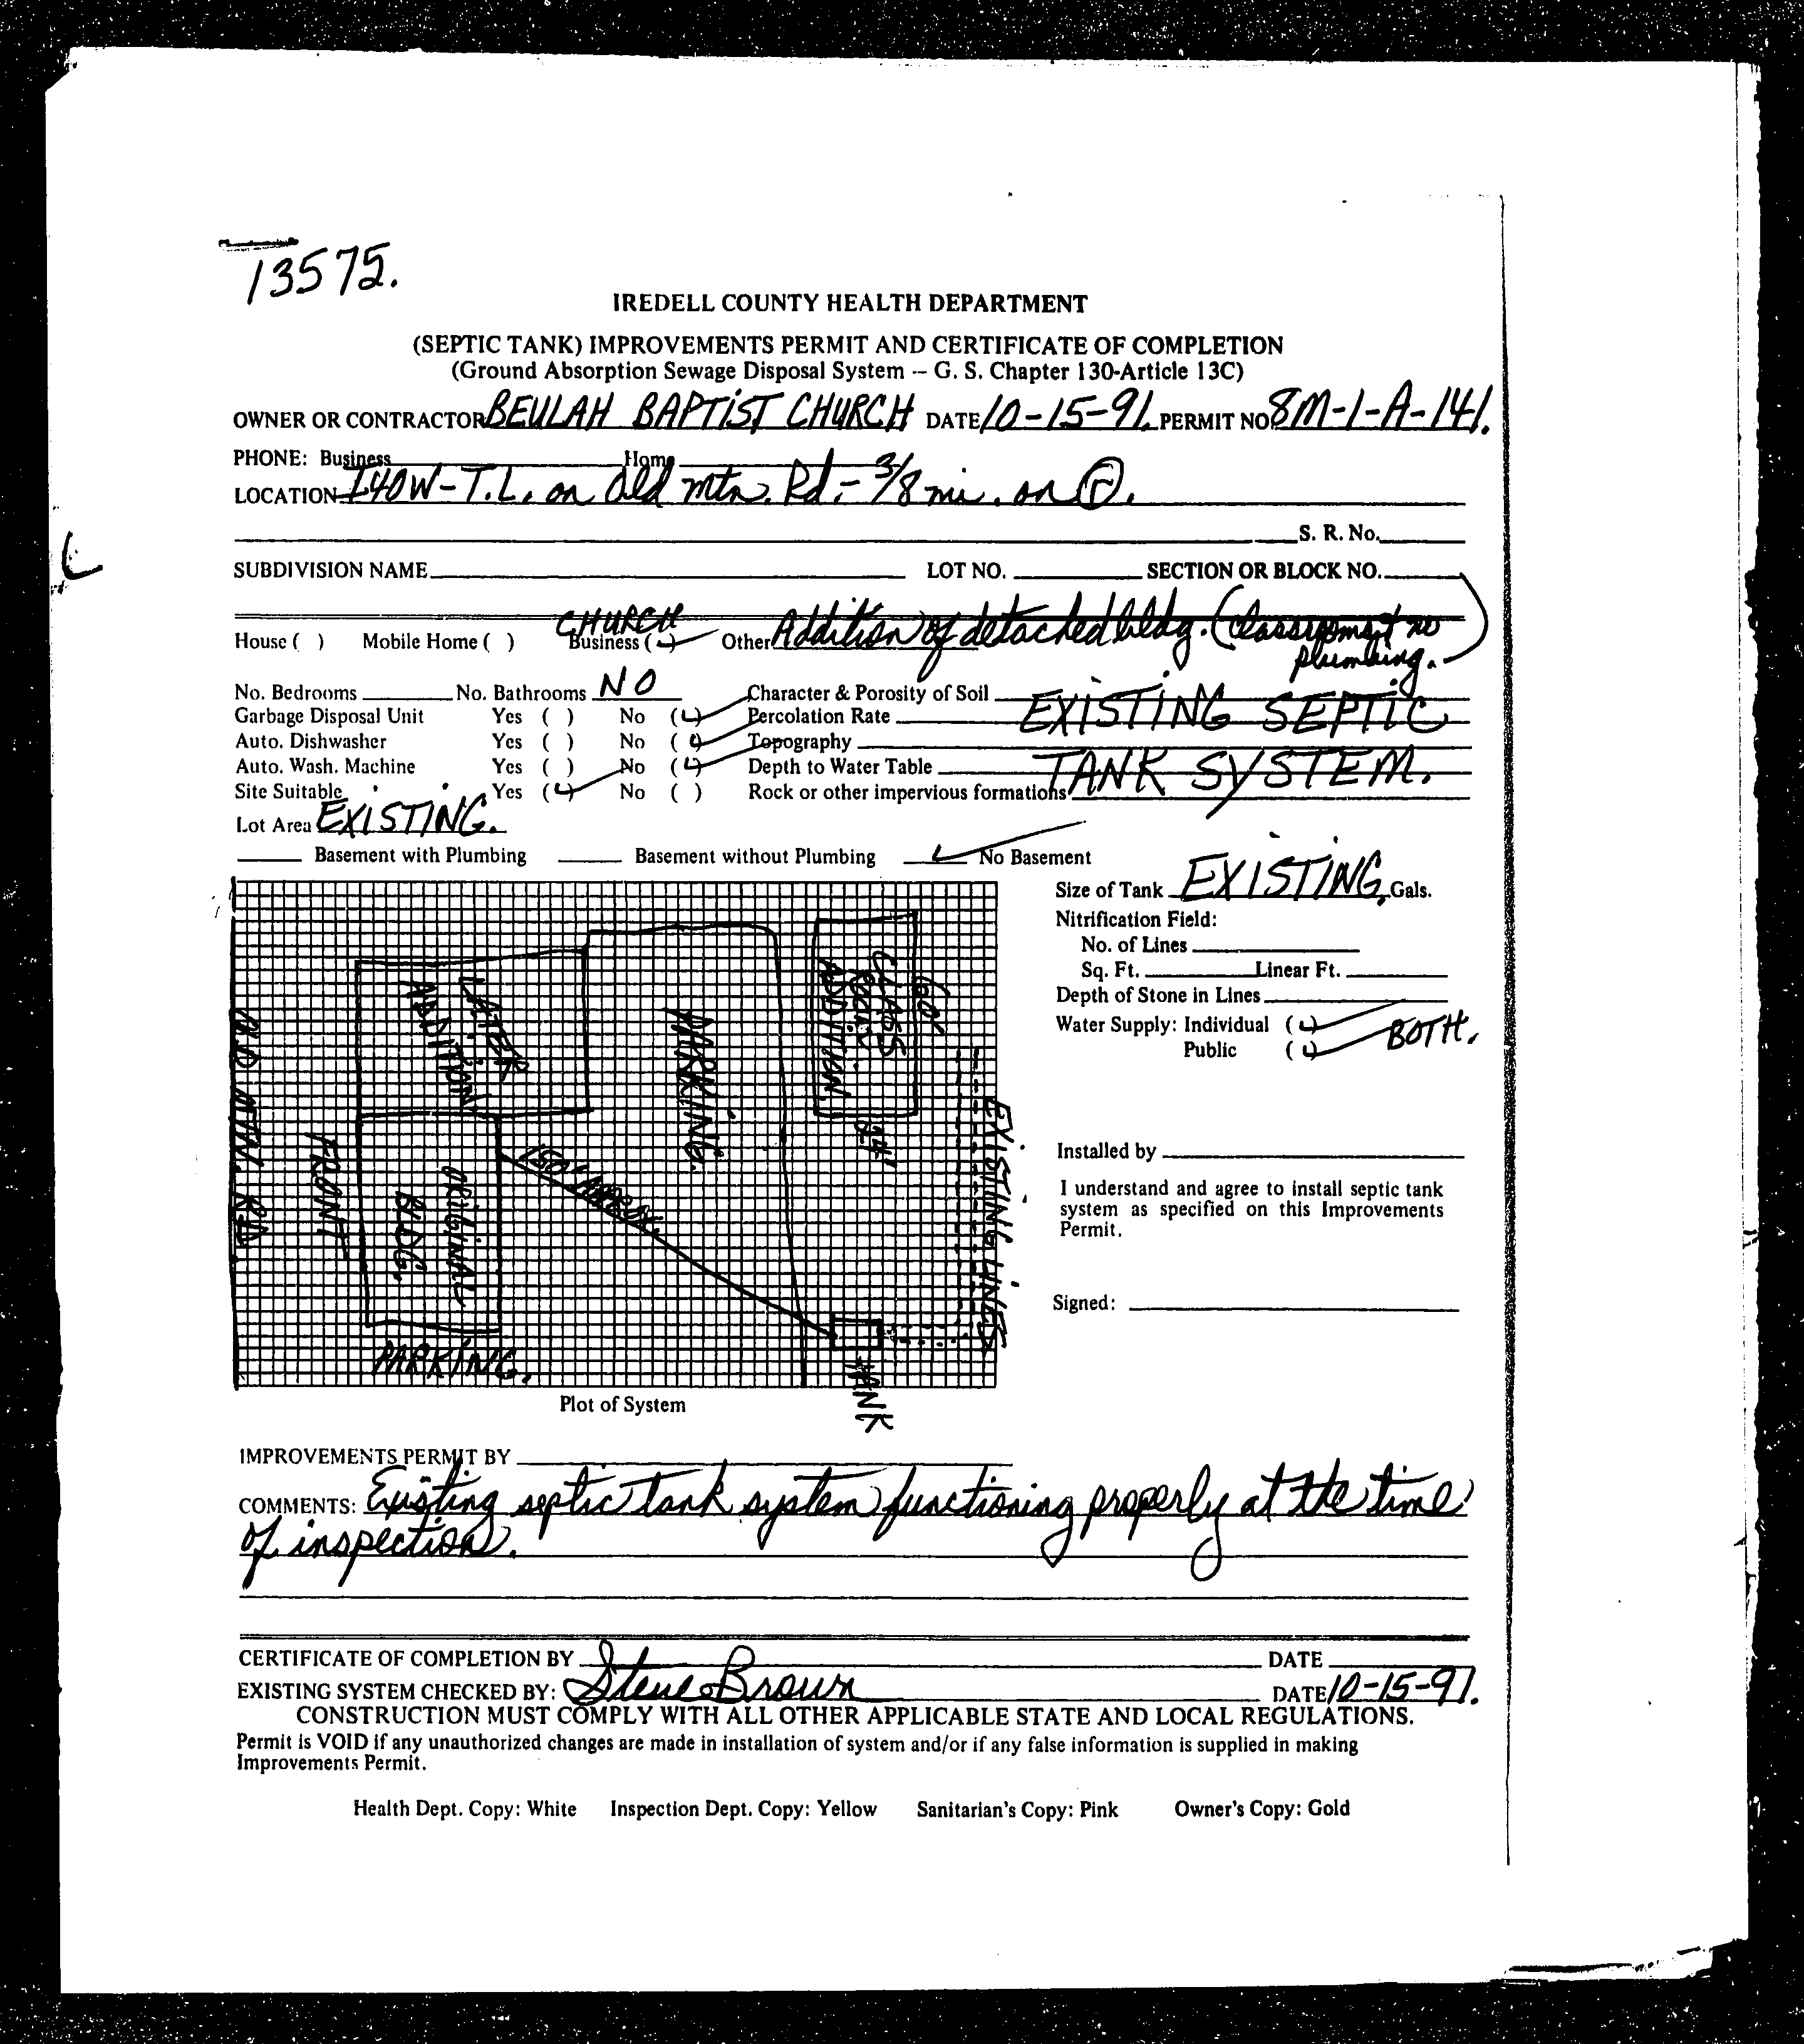 13575.
IREDELL COUNTY HEALTH DEPARTMENT
(SEPTIC TANK) IMPROVEMENTS PERMIT AND CERTIFICATE OF COMPLETION
(Ground Absorption Sewage Disposal System -- G. S. Chapter 130-Article 13C)
OWNER OR CONTRACTOR BEULAH BAPTIST CHURCH DATE 10-15-91. PERMIT NO 8M-1-A-141.
PHONE: Business Home
LOCATION I40W-T.L. on Old Mtn. Rd.- 3/8 mi. on R.
S. R. No.
SUBDIVISION NAME LOT NO. SECTION OR BLOCK NO.
CHURCH
House ( ) Mobile Home ( ) Business (✓) Other Addition of detached bldg. (Classrooms + no
plumbing.)
No. Bedrooms No. Bathrooms NO Character & Porosity of Soil EXISTING SEPTIC
Garbage Disposal Unit Yes ( ) No (✓) Percolation Rate
Auto. Dishwasher Yes ( ) No (✓) Topography TANK SYSTEM.
Auto. Wash. Machine Yes ( ) No (✓) Depth to Water Table
Site Suitable Yes (✓) No ( ) Rock or other impervious formations
Lot Area EXISTING.
Basement with Plumbing Basement without Plumbing ✓ No Basement
Size of Tank EXISTING, Gals.
Nitrification Field:
No. of Lines
Sq. Ft. Linear Ft.
Depth of Stone in Lines
Water Supply: Individual (✓) BOTH.
Public (✓)
Installed by
I understand and agree to install septic tank
system as specified on this Improvements
Permit.
Signed:
OLD MTN. RD
FRONT
LATER
ADDITION
ORIGINAL
BLDG.
PARKING.
150' APPROX
PARKING.
60'
CLASS
ROOM
ADDITION.
24'
EXISTING LINES
TANK
Plot of System
IMPROVEMENTS PERMIT BY
COMMENTS: Existing septic tank system functioning properly at the time
of inspection.
CERTIFICATE OF COMPLETION BY DATE
EXISTING SYSTEM CHECKED BY: Steve Brown DATE 10-15-91.
CONSTRUCTION MUST COMPLY WITH ALL OTHER APPLICABLE STATE AND LOCAL REGULATIONS.
Permit is VOID if any unauthorized changes are made in installation of system and/or if any false information is supplied in making
Improvements Permit.
Health Dept. Copy: White Inspection Dept. Copy: Yellow Sanitarian's Copy: Pink Owner's Copy: Gold